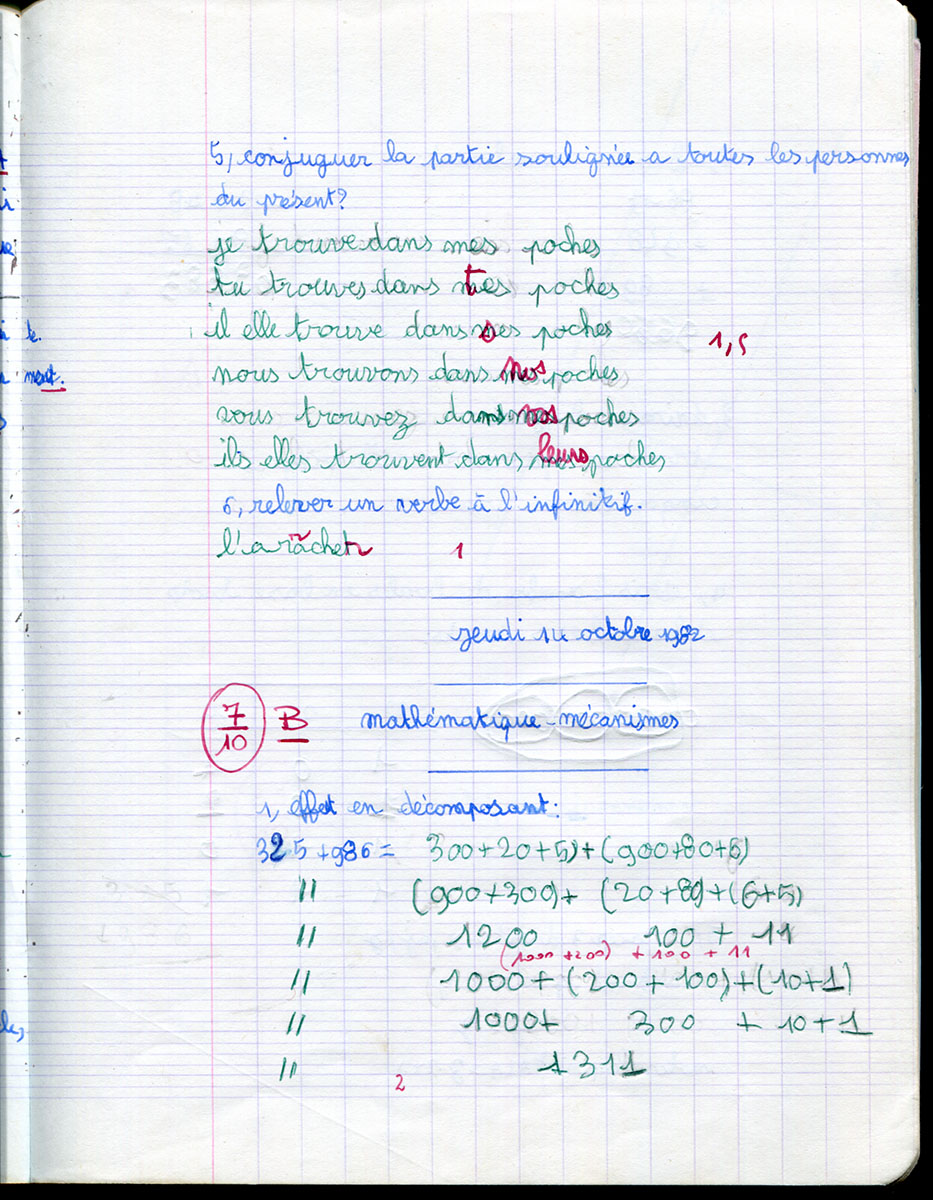 5, conjuguer la partie soulignée a toutes les personnes
du présent?
je trouve dans mes poches
tu trouves dans tes poches
il elle trouve dans ses poches
1,5
nous trouvons dans nos poches
vous trouvez dans vos poches
ils elles trouvent dans leurs poches
6, relever un verbe à l'infinitif.
l'arracher 1
jeudi 14 octobre 1982
7/10 B mathématique-mécanismes
1, effet en décomposant:
325+986= 300+20+5)+(900+80+6)
" (900+300)+ (20+80)+(6+5)
" 1200 100 + 11
(1000+200) + 100 + 11
" 1000+(200+100)+(10+1)
" 1000+ 300 + 10+1
" 1311
2
ment.